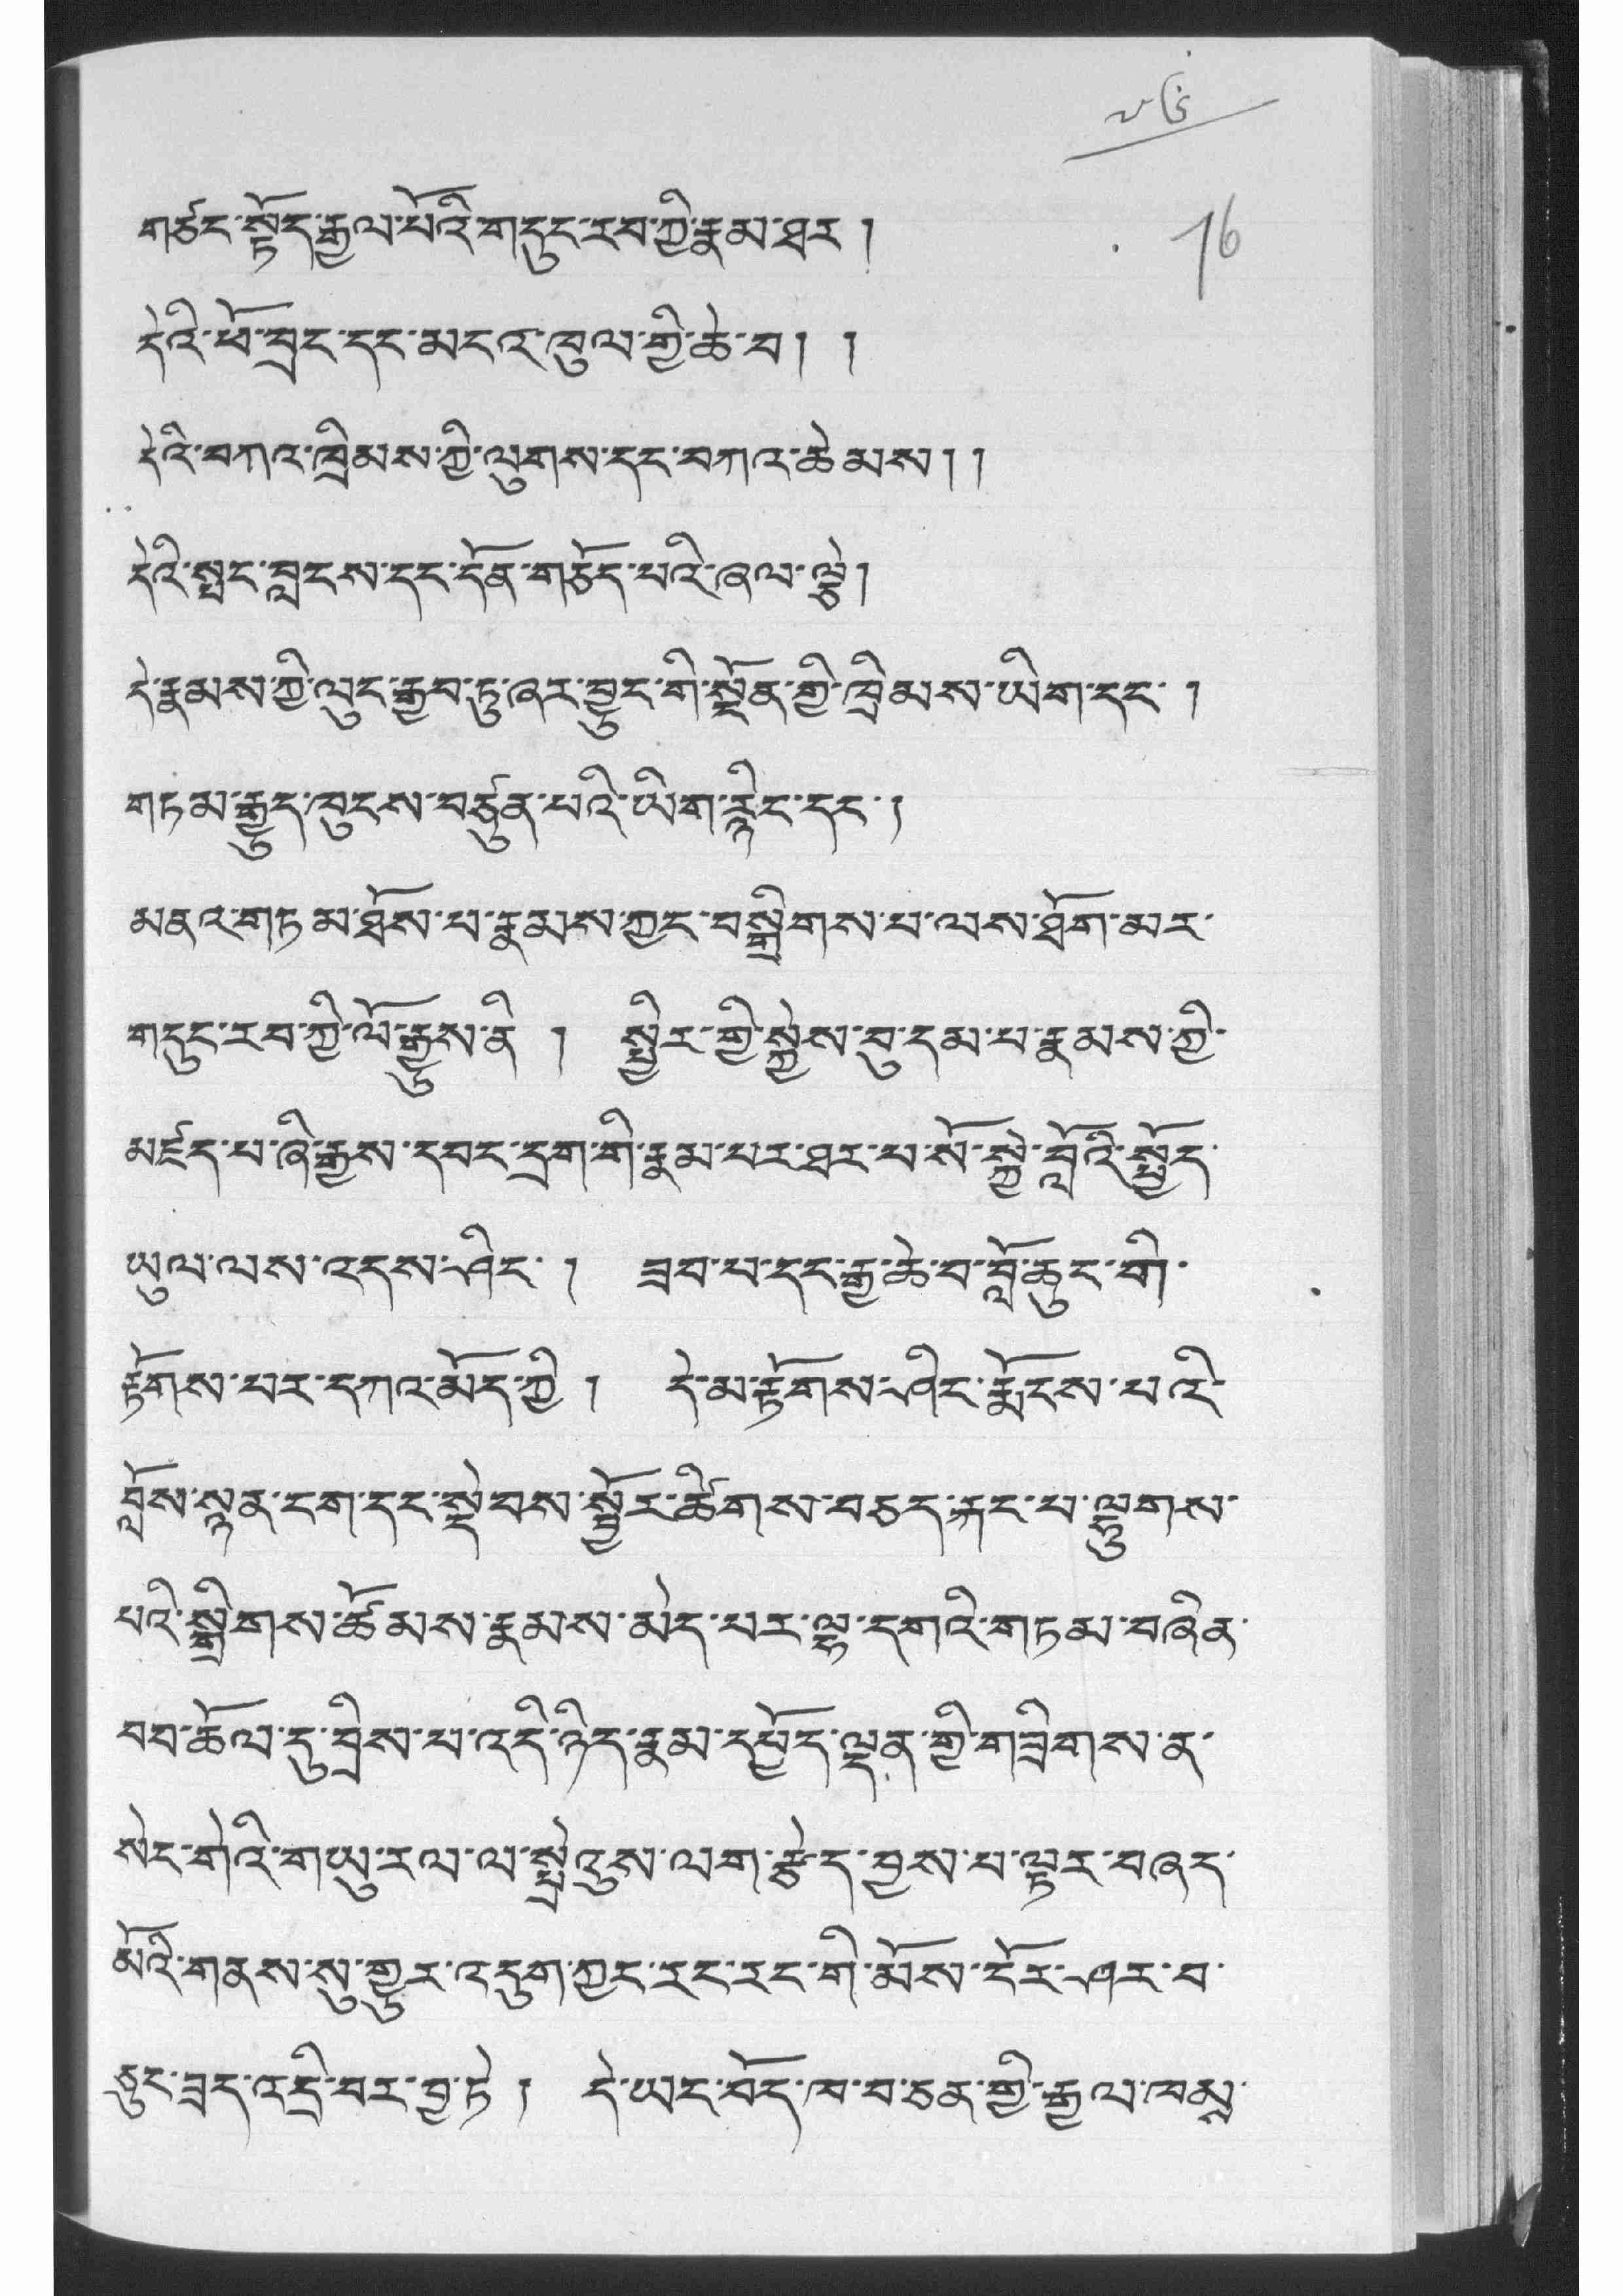 ༧༦
76
གཙང་སྟོད་རྒྱལ་པོའི་གདུང་རབ་ཀྱི་རྣམ་ཐར །
དེའི་ཕོ་བྲང་དང་མངའ་ཁུལ་གྱི་ཆེ་བ། །
དེའི་བཀའ་ཁྲིམས་ཀྱི་ལུགས་དང་བཀའ་ཆེམས། །
དེའི་སྤང་བླངས་དང་དོན་གཅོད་པའི་ཞལ་ལྕེ།
དེ་རྣམས་ཀྱི་ལུང་རྒྱབ་ཏུ་ཞར་བྱུང་གི་སྔོན་གྱི་ཁྲིམས་ཡིག་དང་ །
གཏམ་རྒྱུད་ཁུངས་བཙུན་པའི་ཡིག་རྙིང་དང་ །
མནའ་གཏམ་ཐོས་པ་རྣམས་ཀྱང་བསྒྲིགས་པ་ལས་ཐོག་མར་
གདུང་རབ་ཀྱི་ལོ་རྒྱུས་ནི ། སྤྱིར་གྱི་སྐྱེས་བུ་དམ་པ་རྣམས་ཀྱི་
མཛད་པ་ཞི་རྒྱས་དབང་དྲག་གི་རྣམ་པར་ཐར་པ་སོ་སྐྱེ་བློའི་སྤྱོད་
ཡུལ་ལས་འདས་ཤིང་ ། ཟབ་པ་དང་རྒྱ་ཆེ་བ་བློ་ཆུང་གི་
རྟོགས་པར་དཀའ་མོད་ཀྱི ། དེ་མ་རྟོགས་ཤིང་རྨོངས་པའི་
བློས་སྙན་ངག་དང་སྡེབས་སྦྱོར་ཚིགས་བཅད་རྐང་པ་ལྷུགས་
པའི་སྒྲིགས་ཚོམས་རྣམས་མེད་པར་ལྟ་དགའི་གཏམ་བཞིན་
བབ་ཆོལ་དུ་བྲིས་པ་འདི་ཉིད་རྣམ་དཔྱོད་ལྡན་གྱི་གཟིགས་ན་
སེང་གེའི་གཡུ་རལ་ལ་སྤྲེའུས་ལག་རྩེད་བྱས་པ་ལྟར་བཞད་
མོའི་གནས་སུ་གྱུར་འདུག་ཀྱང་རང་རང་གི་མོས་ངོར་ཤར་བ་
ཅུང་ཟད་འདྲི་བར་བྱ་ཏེ ། དེ་ཡང་བོད་ཁ་བ་ཅན་གྱི་རྒྱལ་ཁམས་